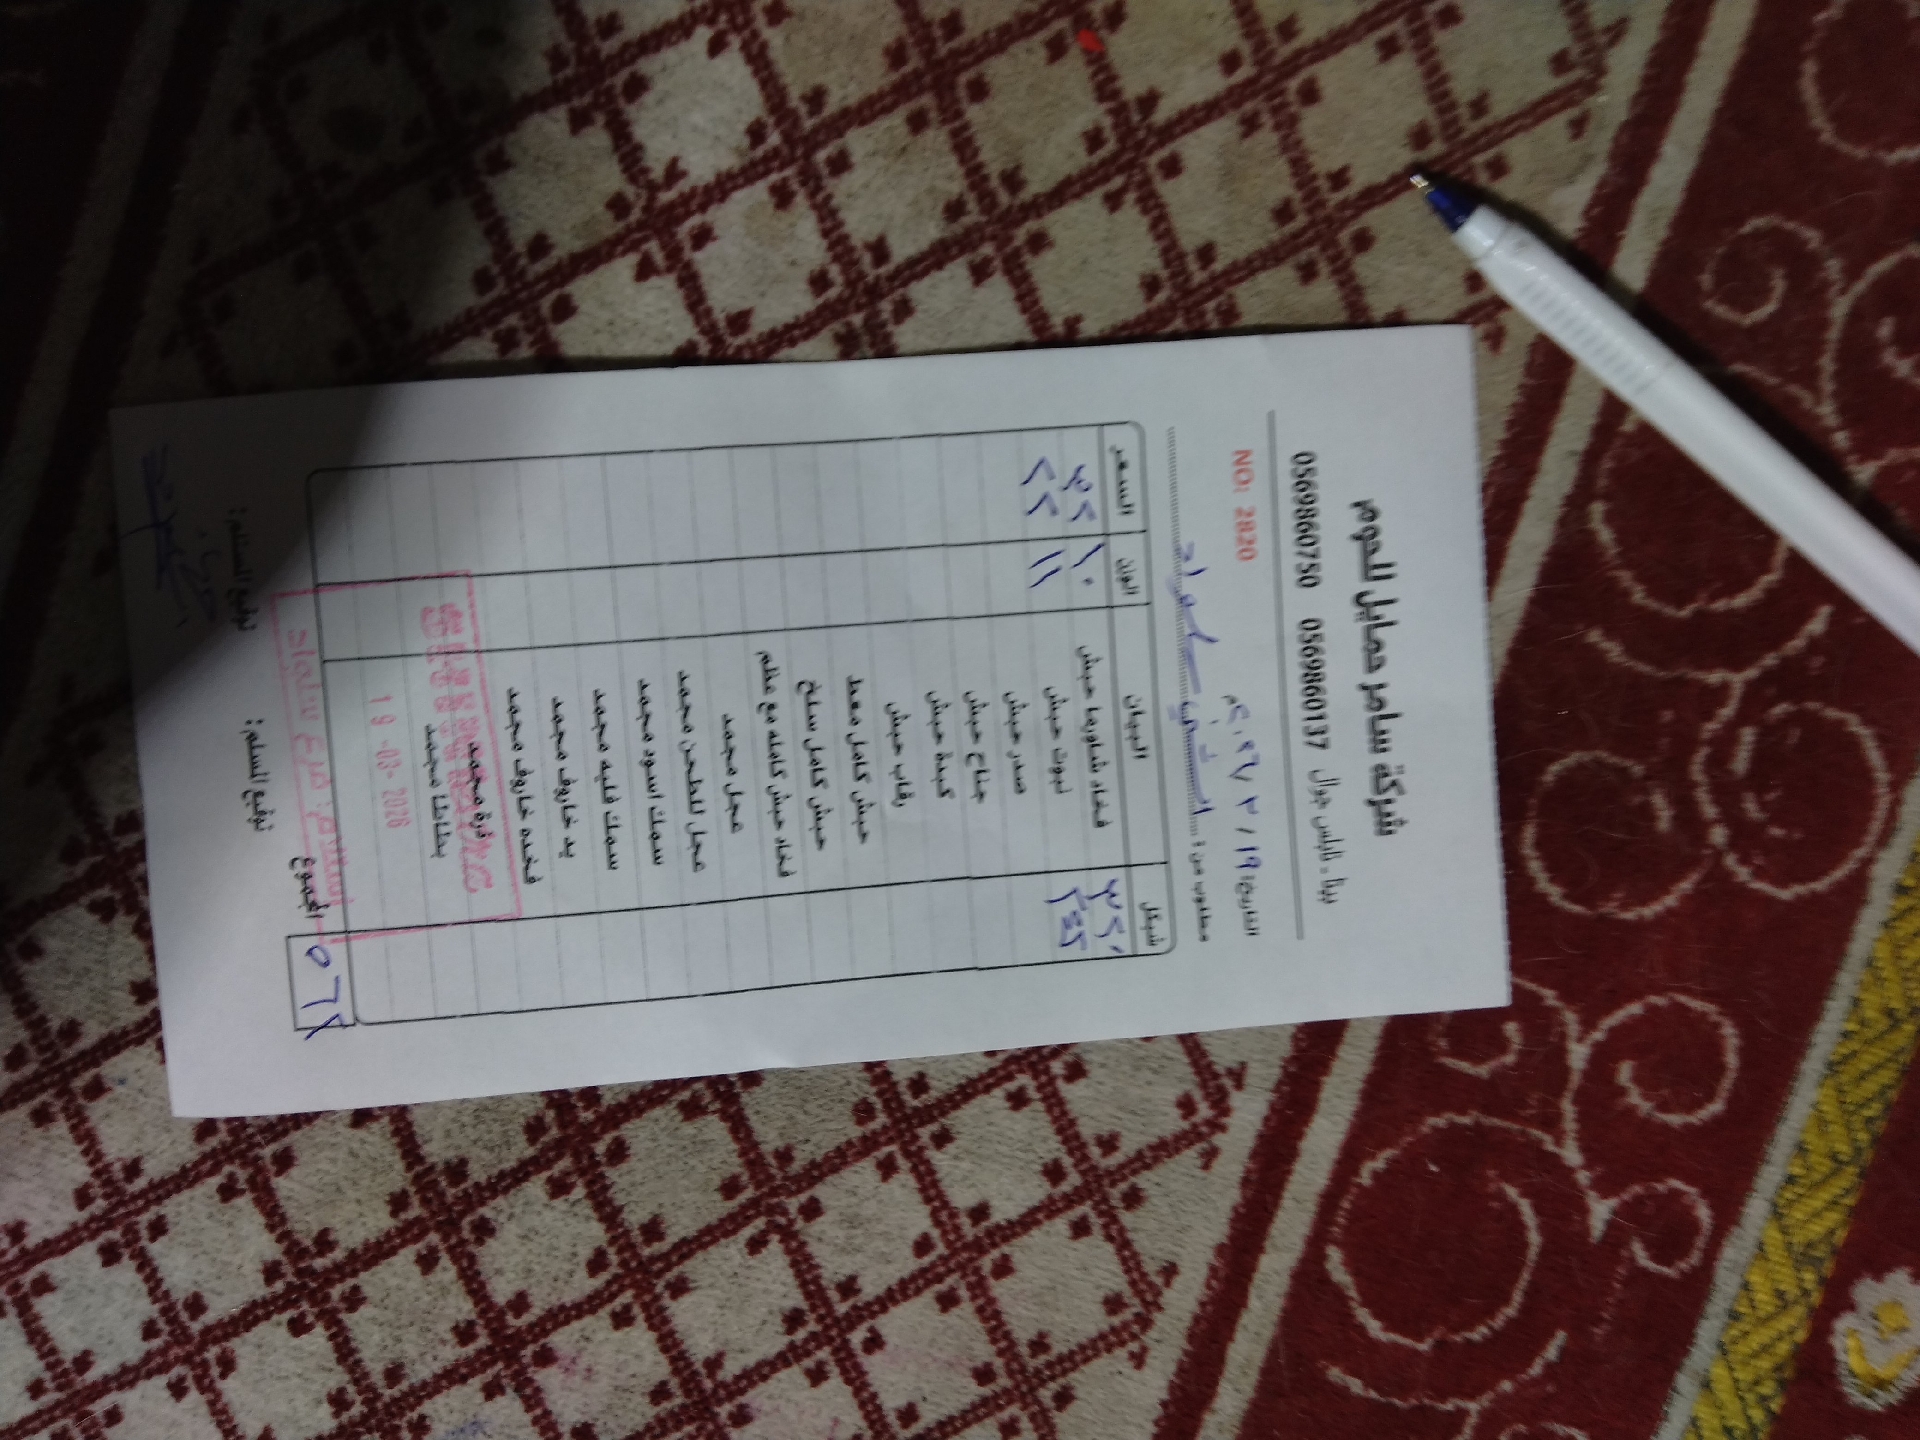 شركة سامر حمايل للحوم
بيتا - نابلس جوال 0569860137 0569860750
التاريخ: ١٩ / ٣ / ٢٠٢٦م NO: 2820
مطلوب من: الشني سلواد
شيكل البيان الوزن السعر
٣٢٠ فخاد شاورما حبش ١٠ ٣٢
٢٤٢ نبوت حبش ١١ ٢٢
صدر حبش
جناح حبش
كبدة حبش
رقاب حبش
حبش كامل معط
حبش كامل سلخ
فخاد حبش كامله مع عظم
عجل مجمد
عجل للطحن مجمد
سمك اسود مجمد
سمك فليه مجمد
يد خاروف مجمد
فخده خاروف مجمد
فرة مجمد
بطاطا مجمد
19 -03- 2026
استلام: فرع سلواد
٥٦٢ المجموع
توقيع المسلم: توقيع المستلم: